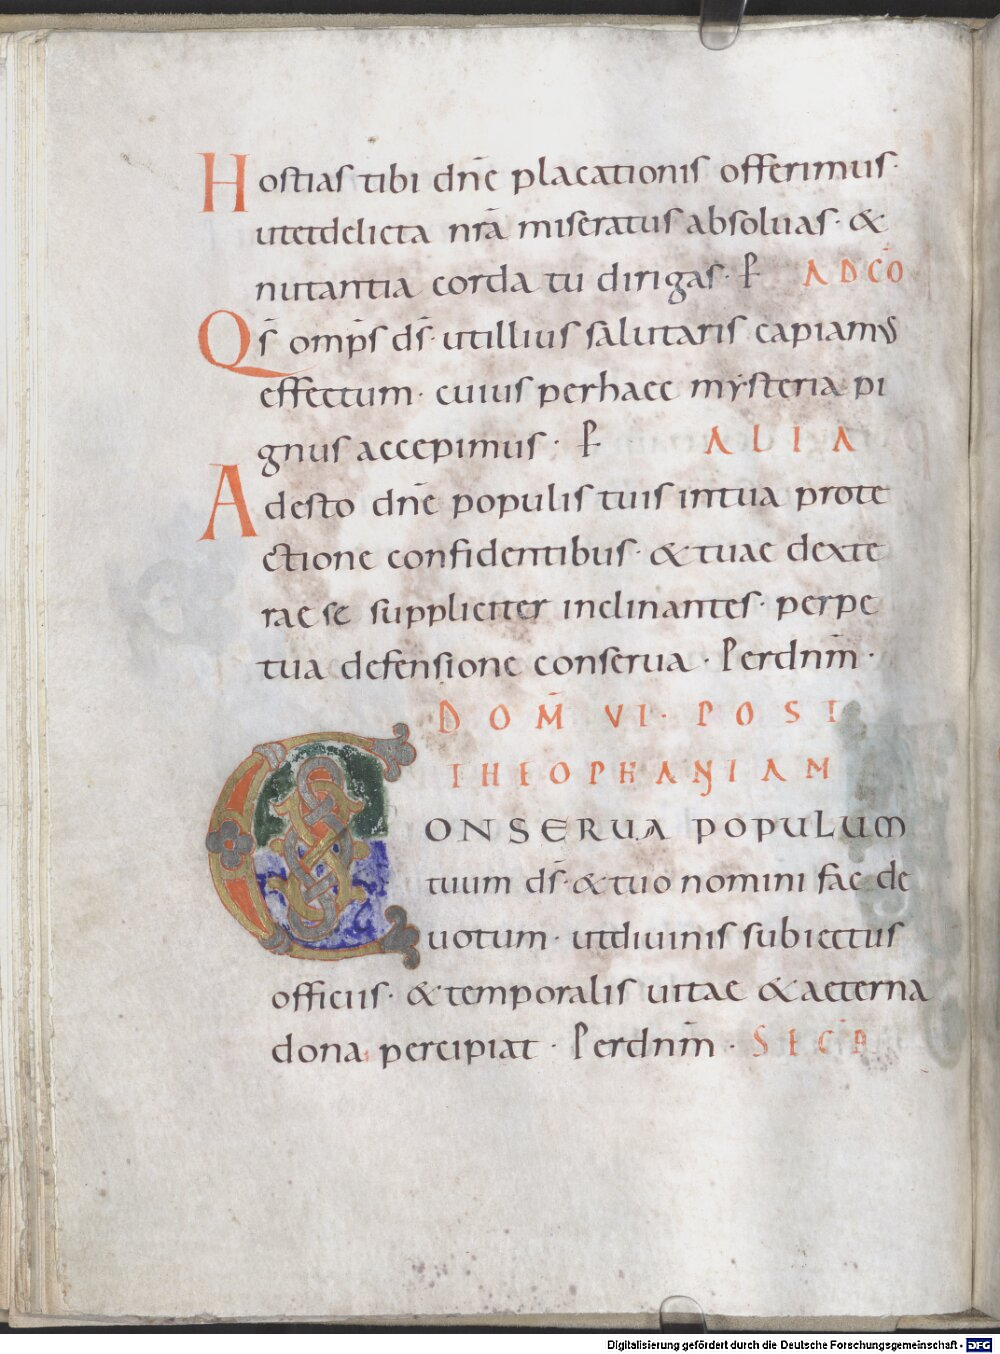 Hostias tibi dn̄e placationis offerimus·
utetdelicta nr̄a miseratus absoluas· &
nutantia corda tu dirigas· P̄ ADCŌ
Qs̄ omp̄s ds̄· utillius salutaris capiamus
effectum· cuius perhaec mẏsteria pi
gnus accepimus· P̄ ALIA
Adesto dn̄e populis tuis intua prote
ctione confidentibus· &tuae dexte
rae se suppliciter inclinantes· perpe
tua defensione conserua· Perdnm̄·
DOM̄ VI· POST
THEOPHANIAM
CONSERUA POPULUM
tuum ds̄· &tuo nomini fac de
uotum· utdiuinis subiectus
officiis· &temporalis uitae &aeterna
dona percipiat· Perdnm̄· SECR̄
Digitalisierung gefördert durch die Deutsche Forschungsgemeinschaft - DFG